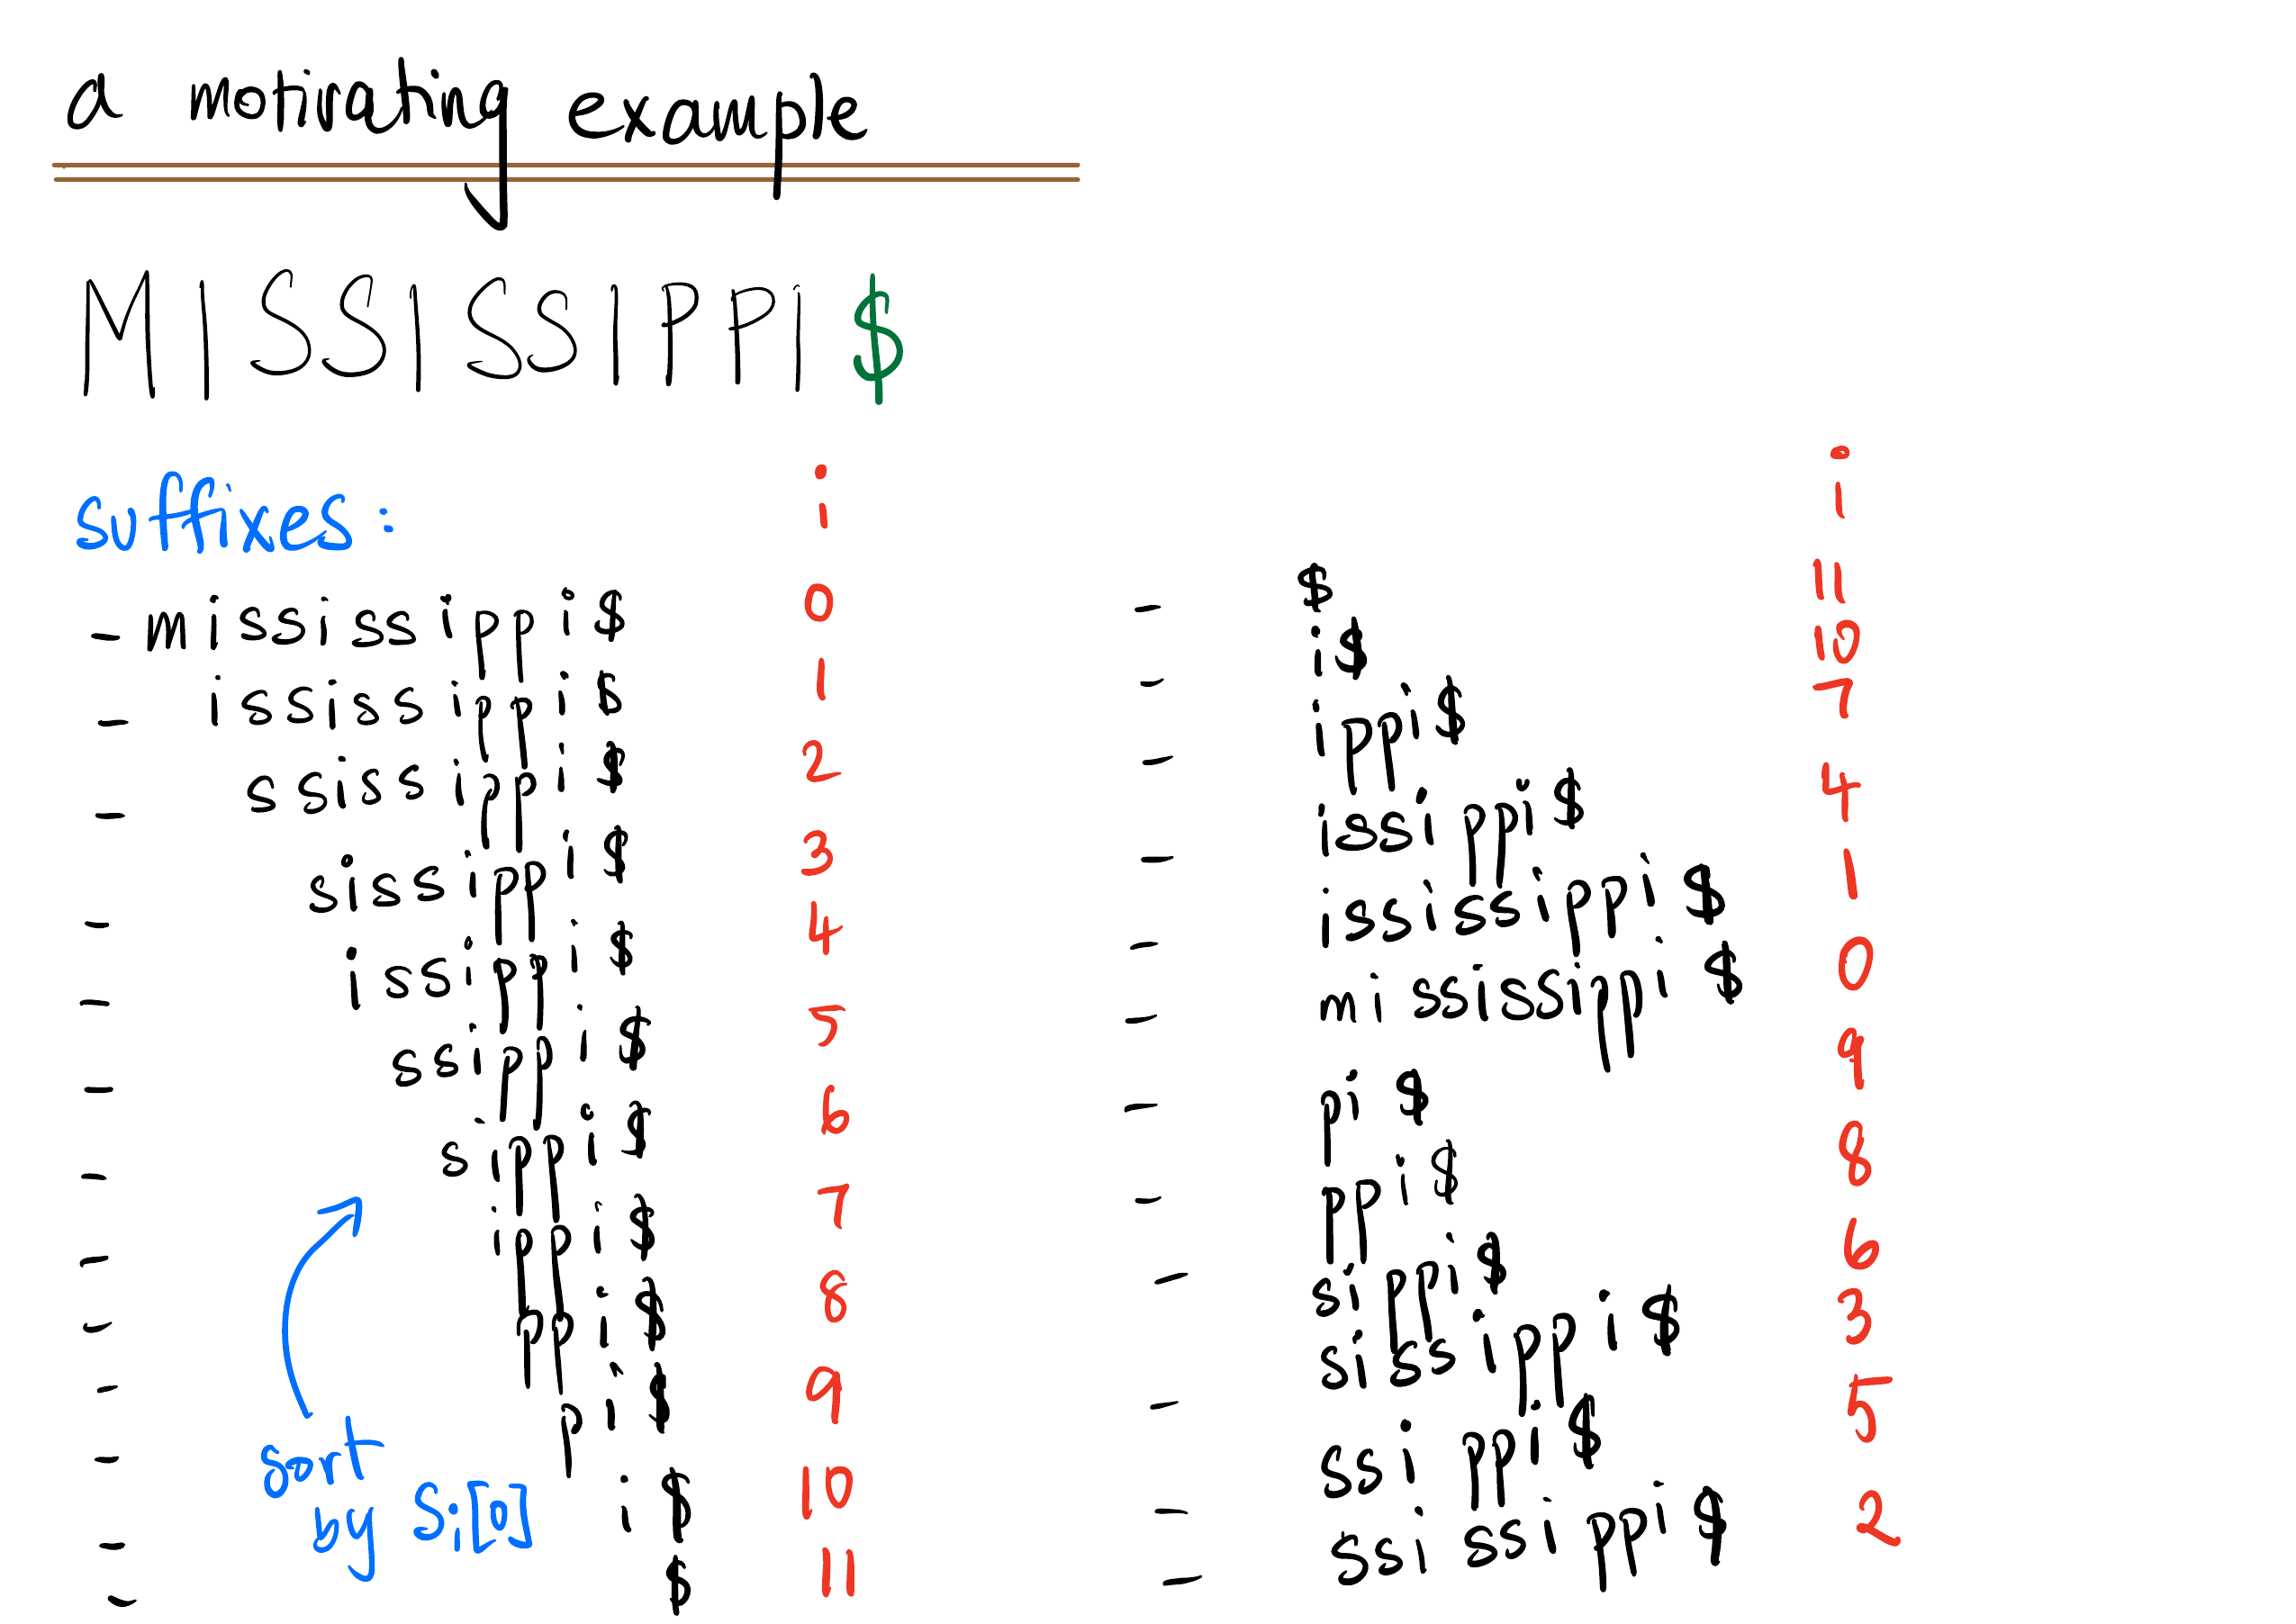 a motivating example
MISSISSIPPI$
suffixes: i
- mississippi$ 0
- ississippi$ 1
- ssissippi$ 2
- sissippi$ 3
- issippi$ 4
- ssippi$ 5
- sippi$ 6
- ippi$ 7
- ppi$ 8
- pi$ 9
- i$ 10
- $ 11
sort
by Si[0]
i
- $ 11
- i$ 10
- ippi$ 7
- issippi$ 4
- ississippi$ 1
- mississippi$ 0
- pi$ 9
- ppi$ 8
- sippi$ 6
- sissippi$ 3
- ssippi$ 5
- ssissippi$ 2